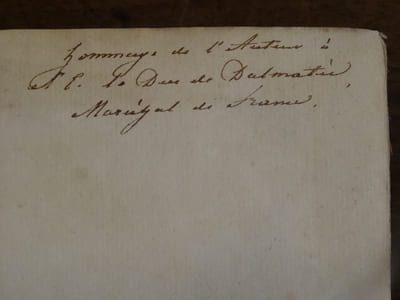 hommage de l'Auteur à
S. E. le Duc de Dalmatie,
Maréchal de France.